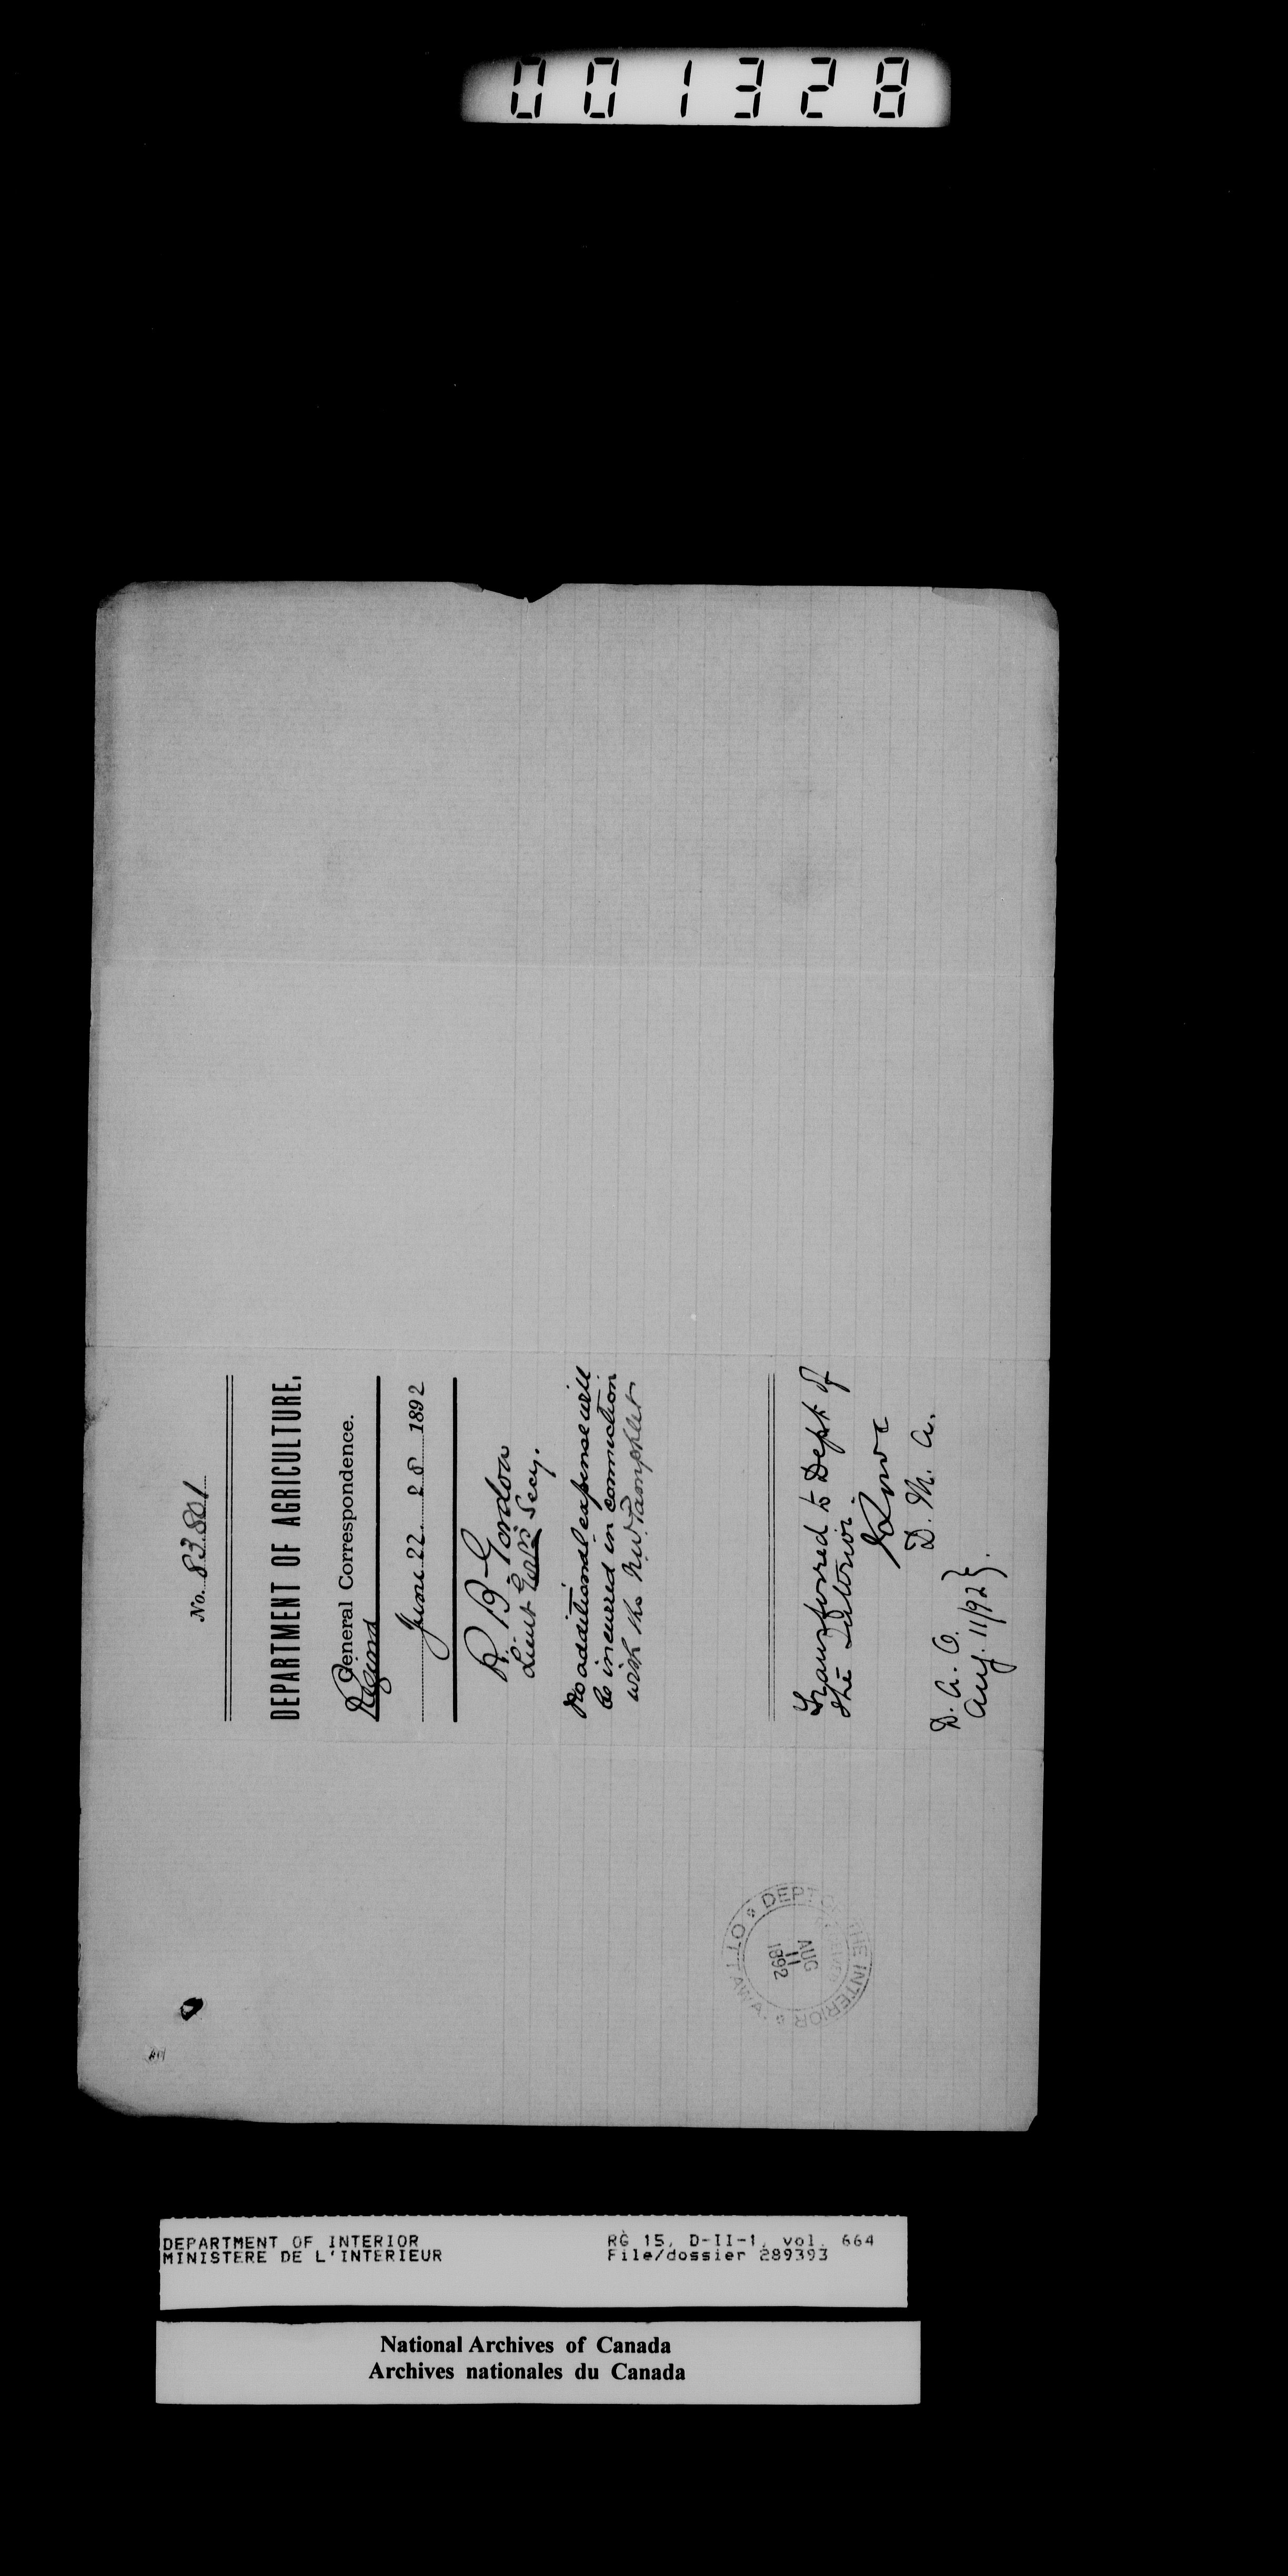 001328
No. 83801
DEPARTMENT OF AGRICULTURE.
General Correspondence.
Regina
June 22. 28 1892
R. B. Gordon
Lieut Gov's Secy.
No additional expense will
be incurred in connection
with the N.W. Pamphlet
Transferred to Dept of
the Interior.
D. M. A.
D. A. O.
Aug. 11/92
DEPT OF THE INTERIOR
OTTAWA.
AUG
11
1892
DEPARTMENT OF INTERIOR
MINISTERE DE L'INTERIEUR
RG 15, D-II-1, vol. 664
File/dossier 289393
National Archives of Canada
Archives nationales du Canada